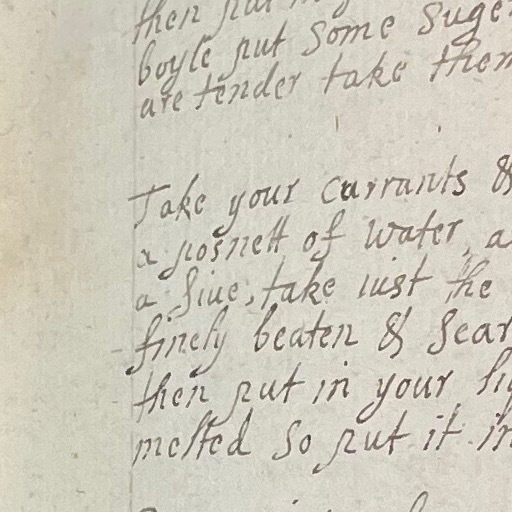 then put
boyle put some suger
are tender take them
Take your currants &
a posnett of water, a
a siue, take iust the
finely beaten & sear
then put in your
melted so put it in